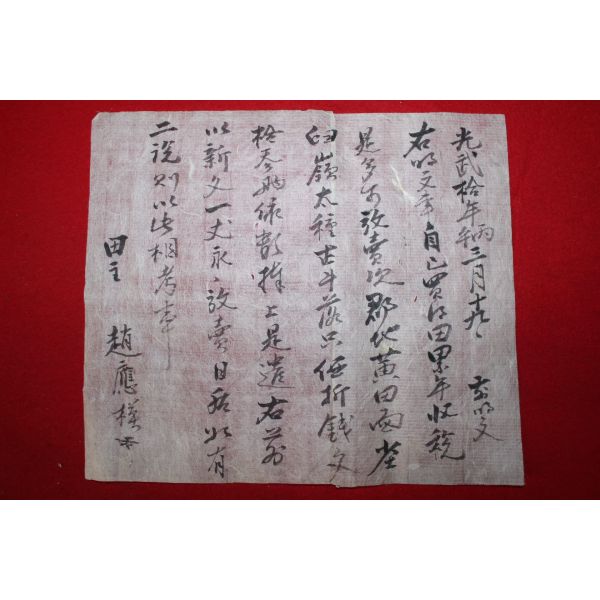 光武拾年丙午三月十九日 前明文
右明文事自己買得田累年收稅
是多可放賣次郡北黃田面坐
臼嶺太種五斗落只価折錢文
拾參兩依數捧上是遣右前
以新文一丈永永放賣日後如有
二說則以此相考事
田主 趙應